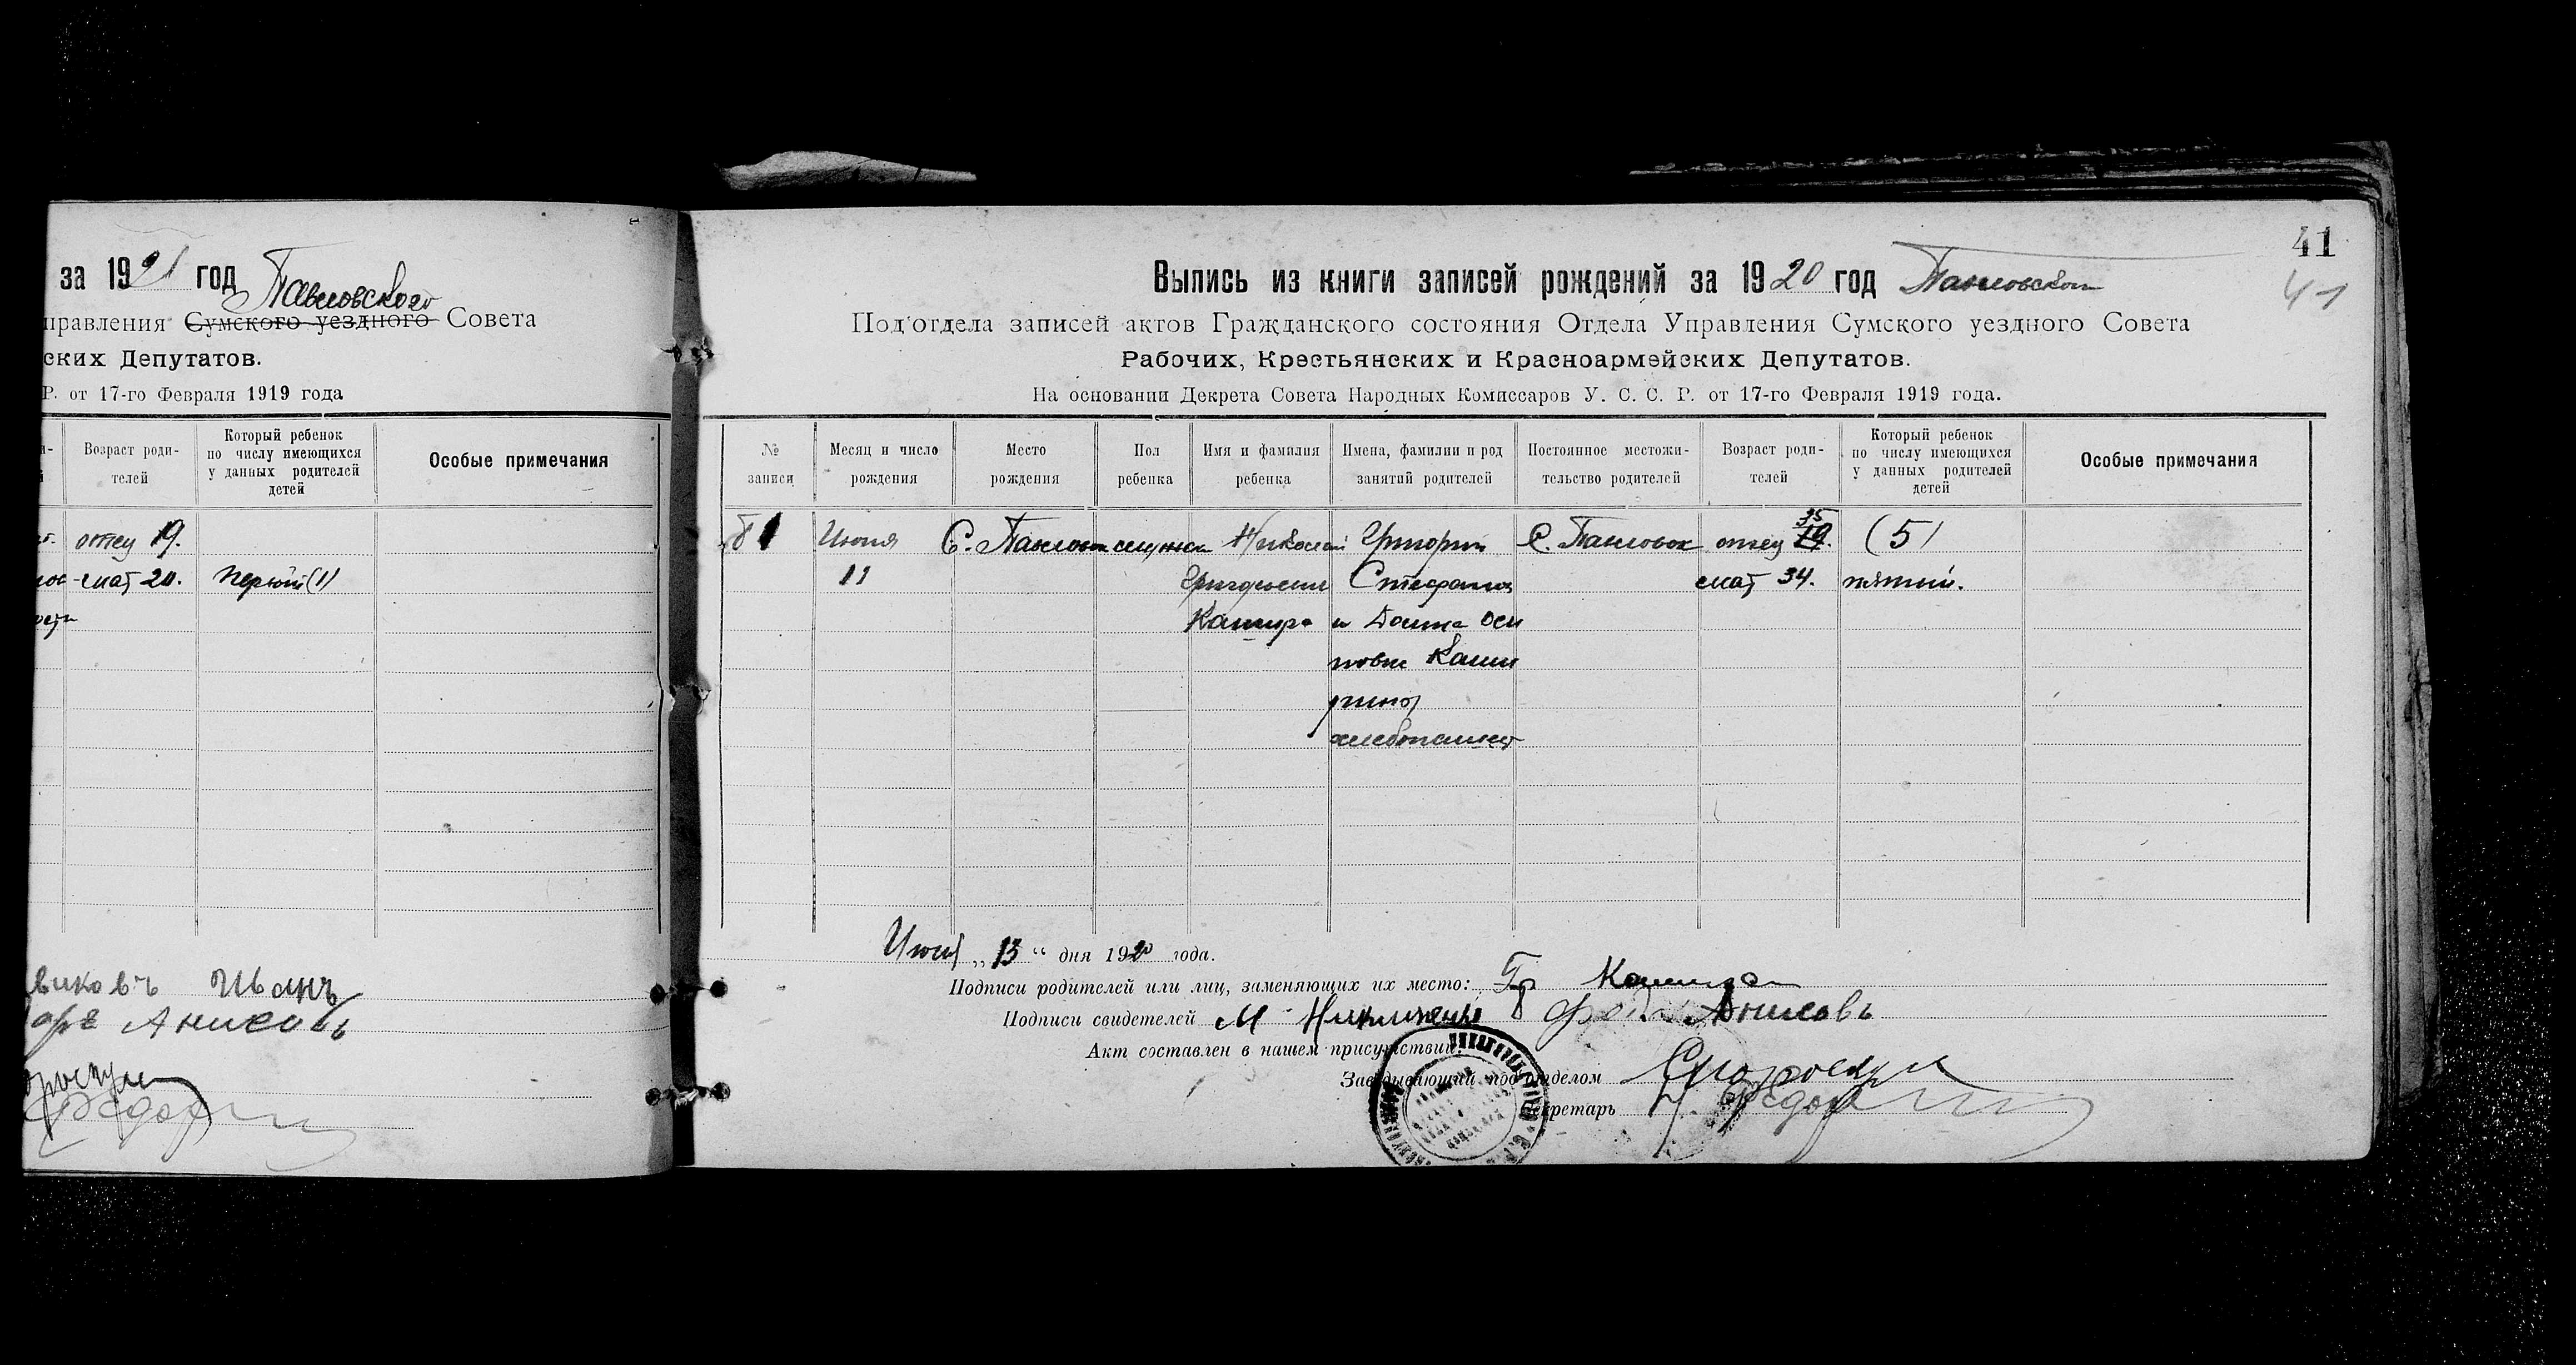 за 1921 год Павловского
правления Сумского уездного Совета
ских Депутатов.
Р. от 17-го Февраля 1919 года
Возраст роди-
телей
Который ребенок
по числу имеющихся
у данных родителей
детей
Особые примечания
отцу 19.
мат 20. первый (1)
виковъ Иванъ
Анисовъ
41
41
Выпись из книги записей рождений за 1920 год Павловской
Под'отдела записей актов Гражданского состояния Отдела Управления Сумского уездного Совета
Рабочих, Крестьянских и Красноармейских Депутатов.
На основании Декрета Совета Народных Комиссаров У. С. С. Р. от 17-го Февраля 1919 года.
№
записи
Месяц и число
рождения
Место
рождения
Пол
ребенка
Имя и фамилия
ребенка
Имена, фамилии и род
занятий родителей
Постоянное местожи-
тельство родителей
Возраст роди-
телей
Который ребенок
по числу имеющихся
у данных родителей
детей
Особые примечания
Июня С. Павловка мужск Николай Григорий С. Павловок отец 35 19. (5)
11 Стефанов мат 34. пятый.
Кашира и Домна Оси
повн Каши
рины
хлебопашест
Июня „13“ дня 1920 года.
Подписи родителей или лиц, заменяющих их место: Гр Кашира
Подписи свидетелей М Анисовъ
Акт составлен в нашем присутствии:
Заведывающий под'отделом
Секретарь